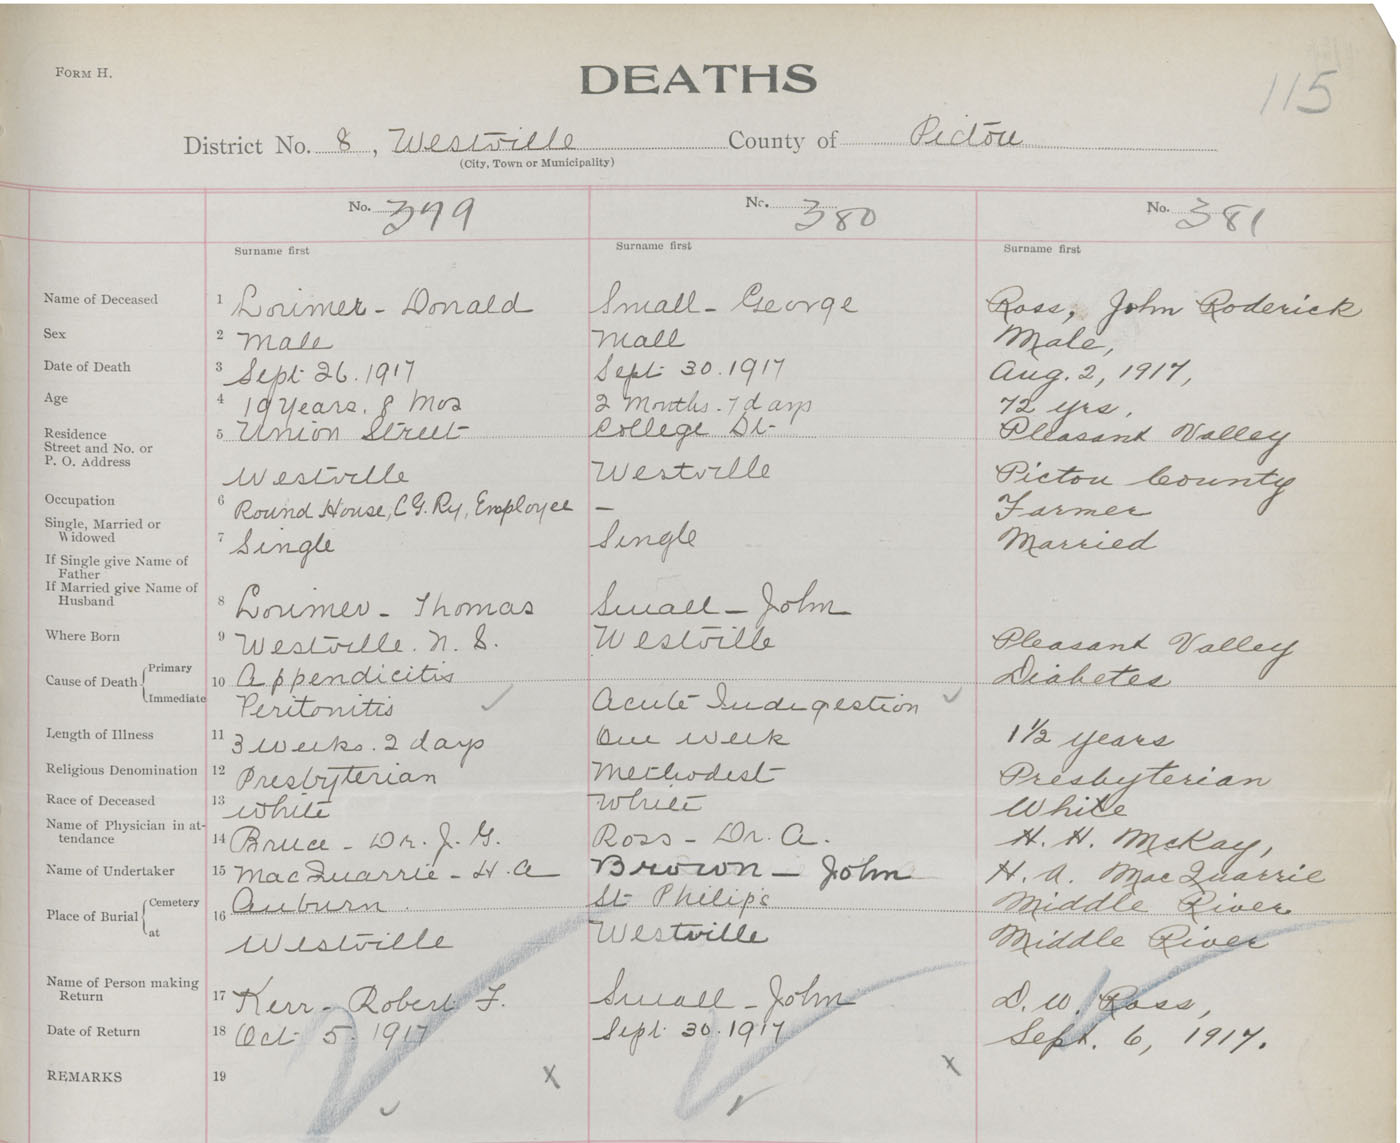 FORM H.
DEATHS
115
District No. 8, Westville County of Pictou
(City, Town or Municipality)
No. 379 No. 380 No. 381
Surname first Surname first Surname first
Name of Deceased 1 Lorimer - Donald Small - George Ross, John Roderick
Sex 2 Male Mall Male,
Date of Death 3 Sept 26. 1917 Sept 30. 1917 Aug. 2, 1917,
Age 4 19 Years. 8 Mos 2 Months. 7 days 72 yrs.
Residence 5 Union Street College St- Pleasant Valley
Street and No. or
P. O. Address Westville Westville Pictou County
Occupation 6 Round House, C G. Ry, Employee — Farmer
Single, Married or
Widowed 7 Single Single Married
If Single give Name of
Father
If Married give Name of
Husband 8 Lorimer - Thomas Small - John
Where Born 9 Westville. N. S. Westville Pleasant Valley
Cause of Death Primary 10 Appendicitis Diabetes
Immediate Peritonitis Acute Indigestion
Length of Illness 11 3 weeks. 2 days One week 1 1/2 years
Religious Denomination 12 Presbyterian Methodist Presbyterian
Race of Deceased 13 White White White
Name of Physician in at-
tendance 14 Bruce - Dr. J. G. Ross - Dr. A. H. H. McKay,
Name of Undertaker 15 MacQuarrie - H. A Brown - John H. A. MacQuarrie
Place of Burial Cemetery 16 Auburn. St Philip's Middle River
at Westville Westville Middle River
Name of Person making
Return 17 Kerr - Robert F. Small - John D. W. Ross,
Date of Return 18 Oct 5. 1917 Sept 30. 1917 Sept. 6, 1917.
REMARKS 19 x x